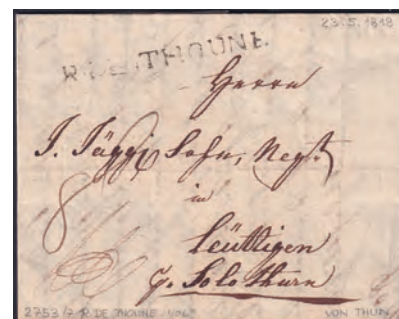 23.5.1818
R. DE. THOUNE
Herrn
J. Jäggi Sohn, Negt.
in
Leüttigen
p. Solothurn
2753/7 R. DE THOUNE
VON THUN